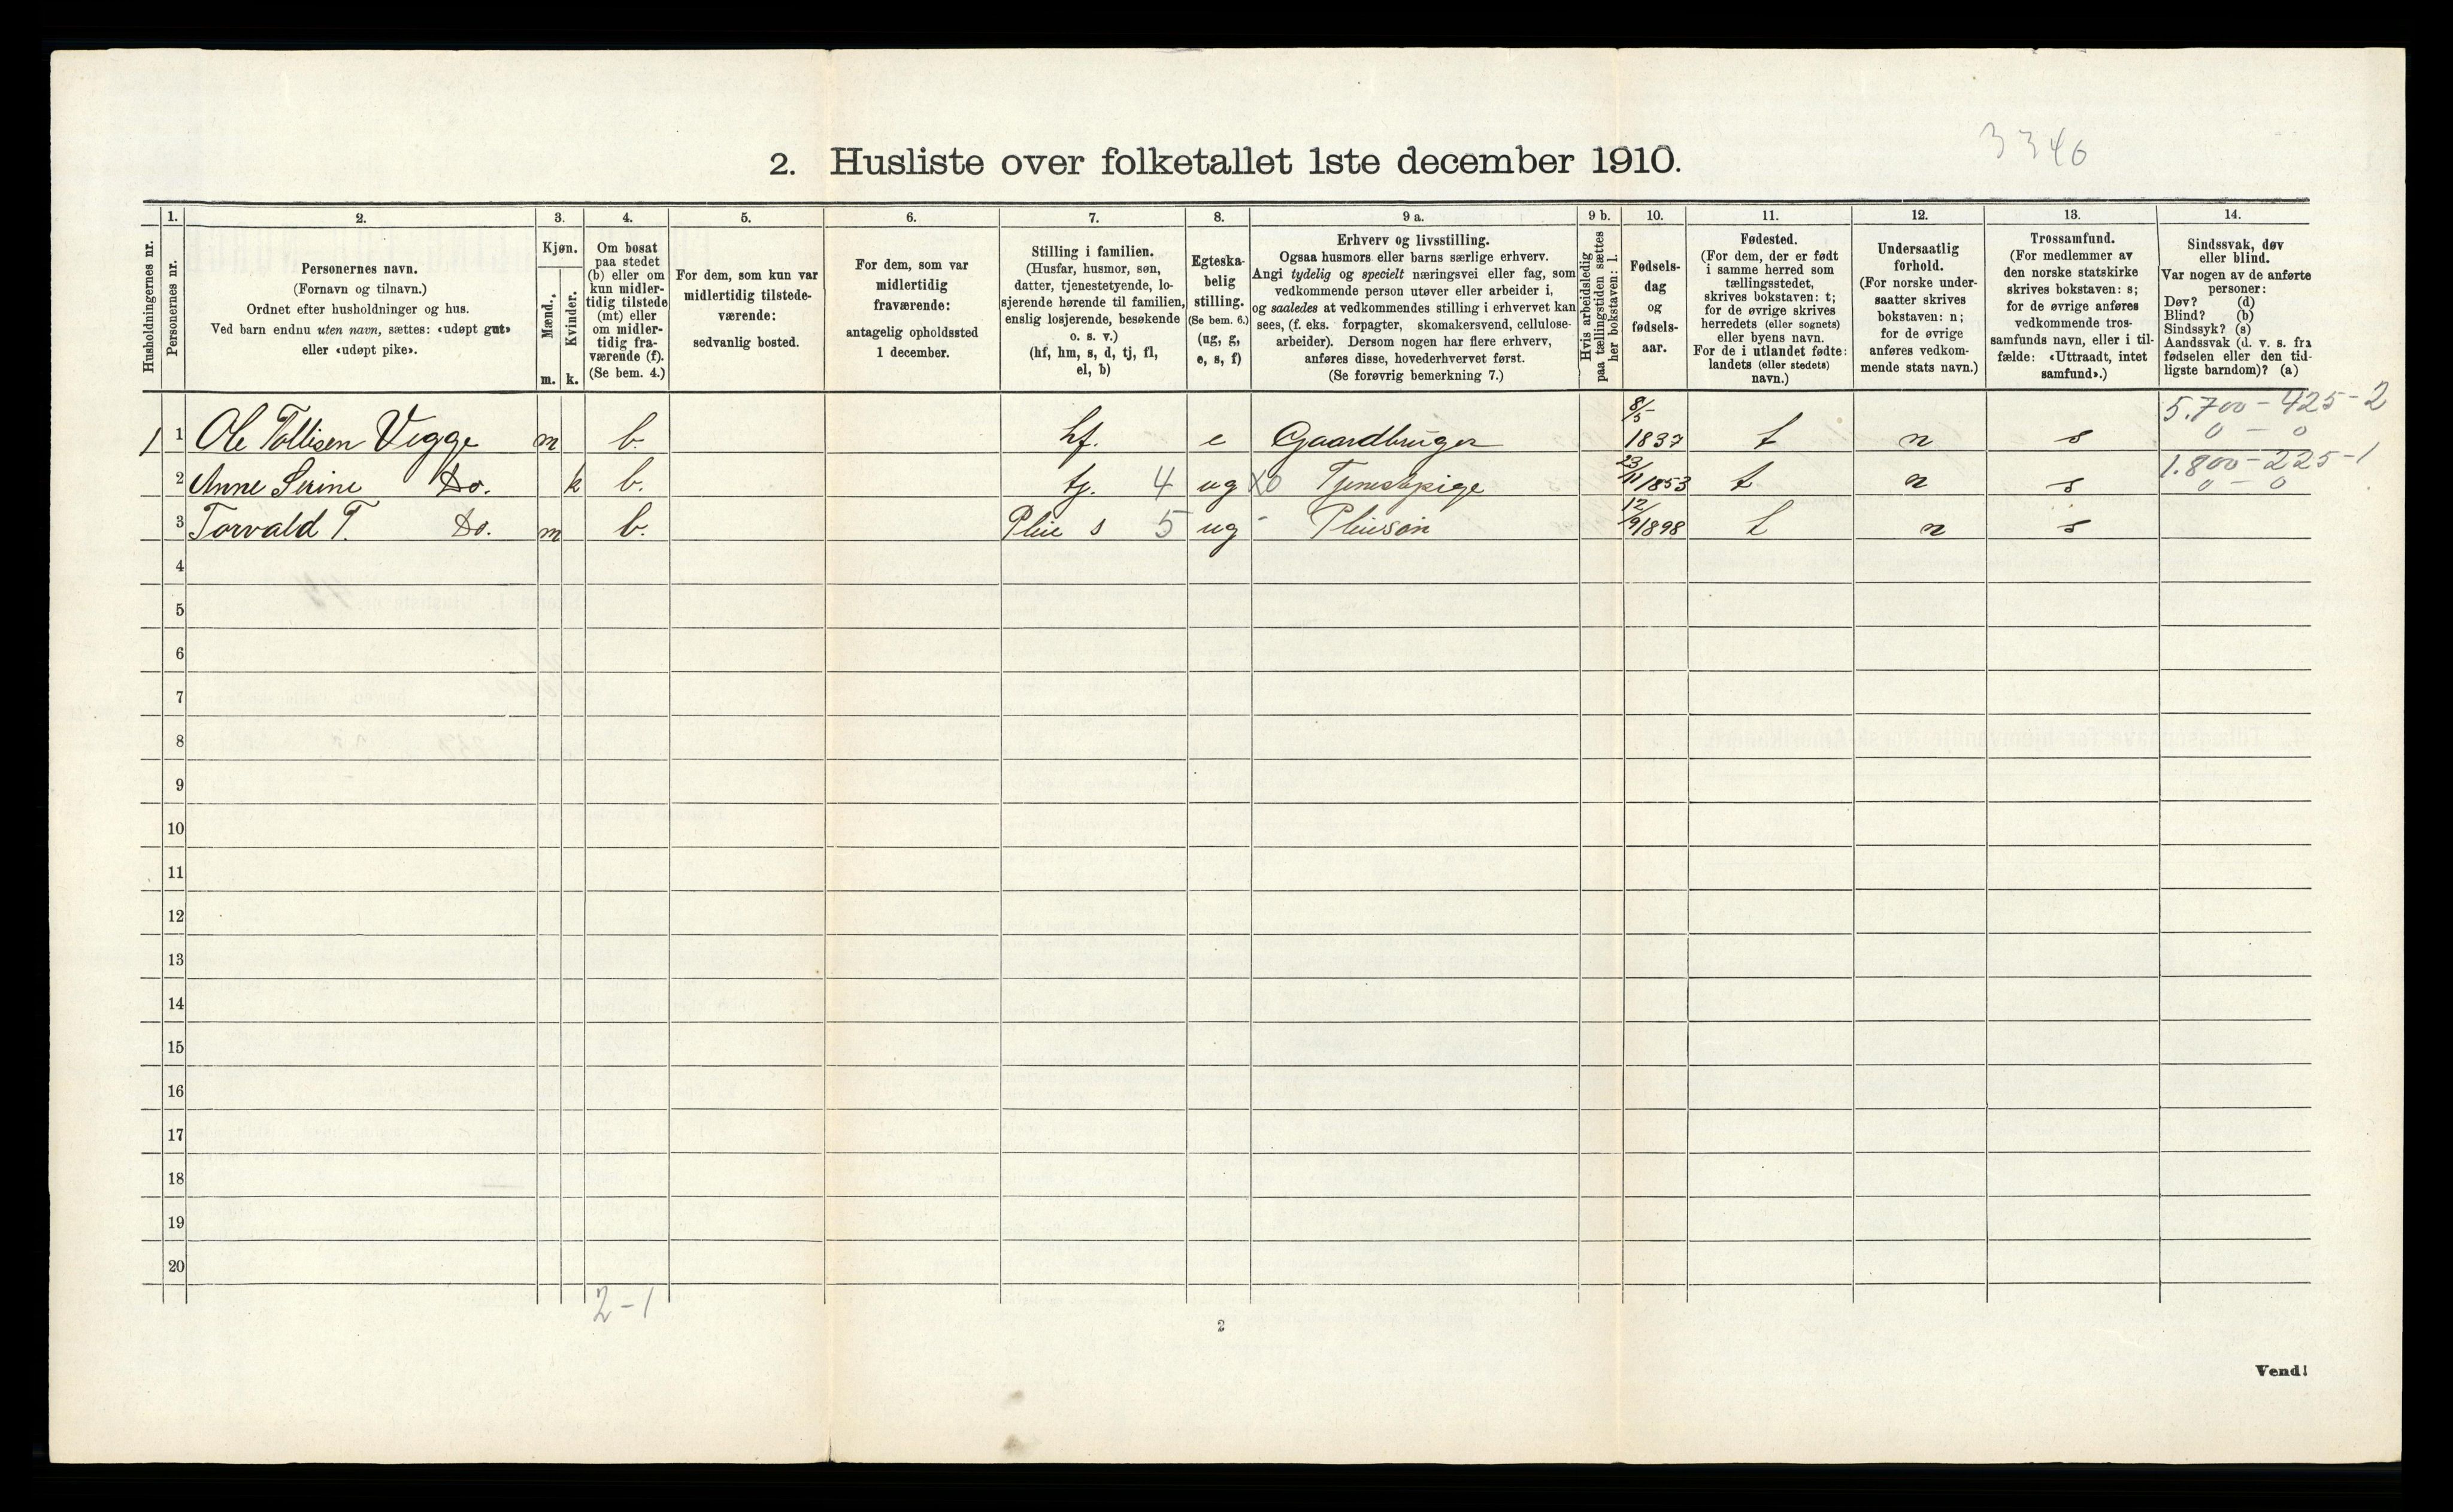 3340
2. Husliste over folketallet 1ste december 1910.
Husholdningernes nr.
1.
Personernes nr.
2.
Personernes navn.
(Fornavn og tilnavn.)
Ordnet efter husholdninger og hus.
Ved barn endnu uten navn, sættes: «udøpt gut»
eller «udøpt pike».
3.
Kjøn.
Mænd.
m.
Kvinder.
k.
4.
Om bosat
paa stedet
(b) eller om
kun midler-
tidig tilstede
(mt) eller
om midler-
tidig fra-
værende (f).
(Se bem. 4.)
5.
For dem, som kun var
midlertidig tilstede-
værende:
sedvanlig bosted.
6.
For dem, som var
midlertidig
fraværende:
antagelig opholdssted
1 december.
7.
Stilling i familien.
(Husfar, husmor, søn,
datter, tjenestetyende, lo-
sjerende hørende til familien,
enslig losjerende, besøkende
o. s. v.)
(hf, hm, s, d, tj, fl,
el, b)
8.
Egteska-
belig
stilling.
(Se bem. 6.)
(ug, g,
e, s, f)
9 a.
Erhverv og livsstilling.
Ogsaa husmors eller barns særlige erhverv.
Angi tydelig og specielt næringsvei eller fag, som
vedkommende person utøver eller arbeider i,
og saaledes at vedkommendes stilling i erhvervet kan
sees, (f. eks. forpagter, skomakersvend, cellulose-
arbeider). Dersom nogen har flere erhverv,
anføres disse, hovederhvervet først.
(Se forøvrig bemerkning 7.)
9 b.
Hvis arbeidsledig
paa tællingstiden sættes
her bokstaven: l.
10.
Fødsels-
dag
og
fødsels-
aar.
11.
Fødested.
(For dem, der er født
i samme herred som
tællingsstedet,
skrives bokstaven: t;
for de øvrige skrives
herredets (eller sognets)
eller byens navn.
For de i utlandet fødte:
landets (eller stedets)
navn.)
12.
Undersaatlig
forhold.
(For norske under-
saatter skrives
bokstaven: n;
for de øvrige
anføres vedkom-
mende stats navn.)
13.
Trossamfund.
(For medlemmer av
den norske statskirke
skrives bokstaven: s;
for de øvrige anføres
vedkommende tros-
samfunds navn, eller i til-
fælde: «Uttraadt, intet
samfund».)
14.
Sindssvak, døv
eller blind.
Var nogen av de anførte
personer:
Døv? (d)
Blind? (b)
Sindssyk? (s)
Aandssvak (d. v. s. fra
fødselen eller den tid-
ligste barndom)? (a)
1 1 Ole Tollisen Vegge m b. hf. e Gaardbruger 8/5 1837 t n s 5.700 - 425 - 2
0 - 0
2 Anne Serine Do. k b. tj. 4 ug X0 Tjenestpige 23/11 1853 t n s 1.800 - 225 - 1
0 - 0
3 Torvald T. Do. m b. Pleie s 5 ug - Pleiesøn 12/9 1898 t n s
4
5
6
7
8
9
10
11
12
13
14
15
16
17
18
19
20
2 - 1
2
Vend!